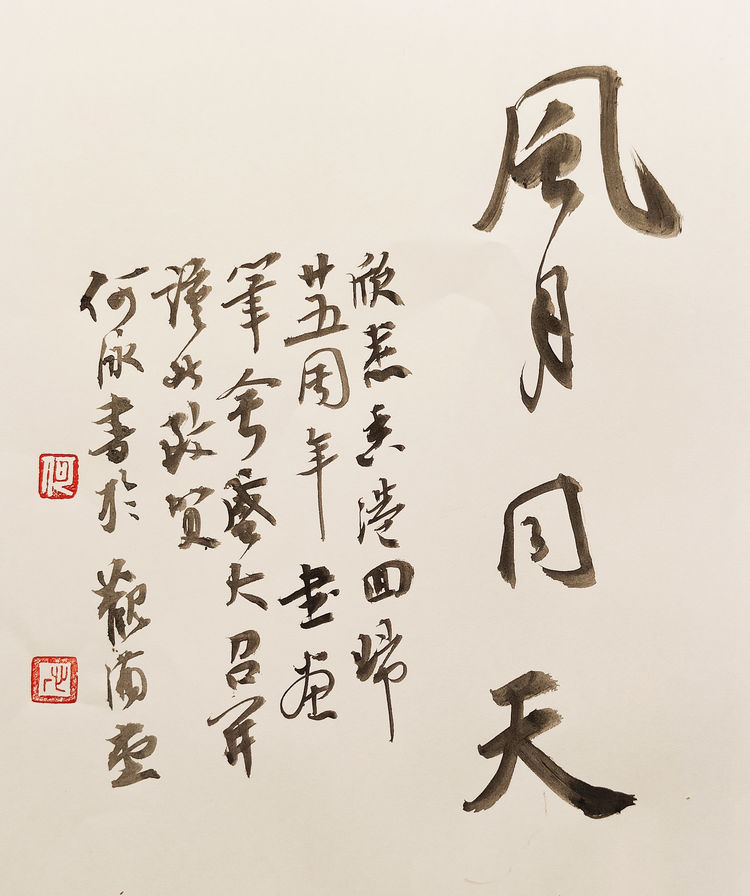 風月同天
欣悉香港回歸
廿五周年書畫
筆會盛大召開
謹此致賀
何泳書於觀
何